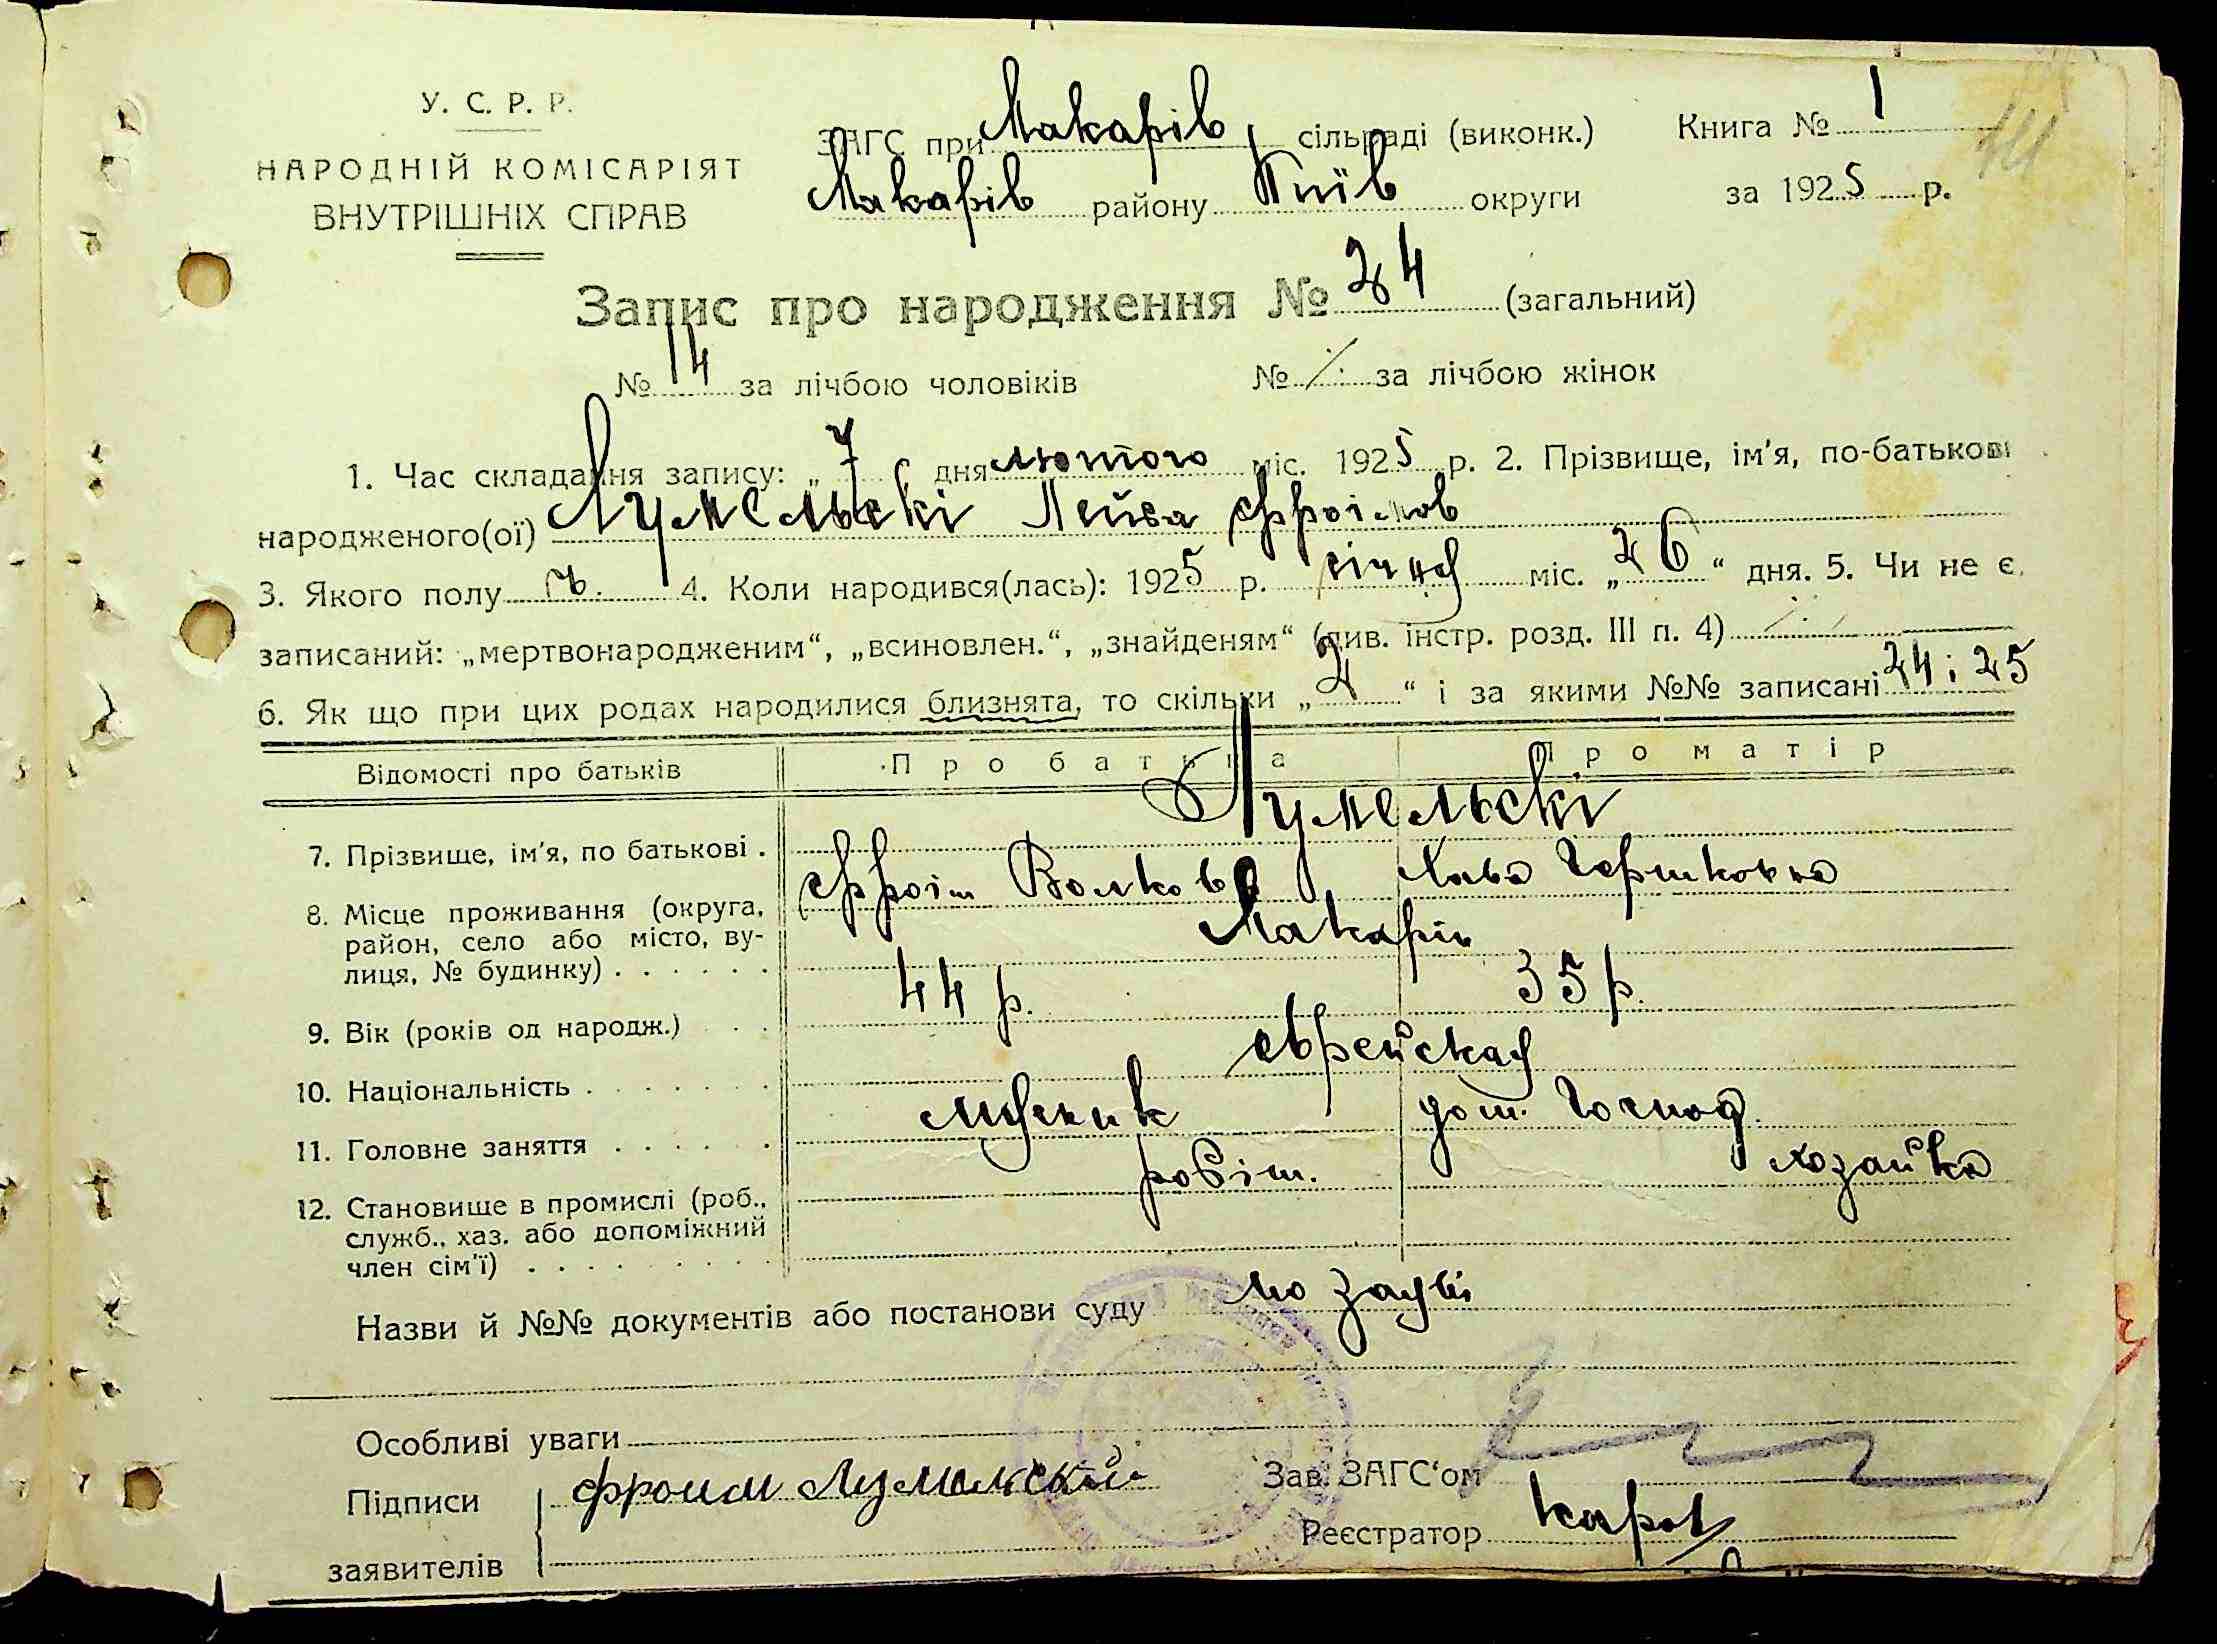 У. С. Р. Р.
НАРОДНІЙ КОМІСАРІЯТ
ВНУТРІШНІХ СПРАВ
ЗАГС при Макарів сільраді (виконк.) Книга № 1
Макарів району Київ округи за 1925 р.
Запис про народження № 24 (загальний)
№ 14 за лічбою чоловіків № за лічбою жінок
1. Час складання запису: „7“ дня лютого міс. 1925 р. 2. Прізвище, ім'я, по-батькові
народженого(ої) Лумельскі Лейба Фроімов
3. Якого полу ч. 4. Коли народився(лась): 1925 р. січня міс. „26“ дня. 5. Чи не є
записаний: „мертвонародженим“, „всиновлен.“, „знайденям“ (див. інстр. розд. III п. 4)
6. Як що при цих родах народилися близнята, то скільки „2“ і за якими №№ записані 24 і 25
Відомості про батьків Про батька Про матір
Лумельскі
7. Прізвище, ім'я, по батькові . Фроім Волков Хава Гершковна
8. Місце проживання (округа, район, село або місто, вулиця, № будинку) . . . . . . Макарів
9. Вік (років од народж.) . . . 44 р. 35 р.
10. Національність . . . . . . . еврейская
11. Головне заняття . . . . . . дом. господ.
12. Становище в промислі (роб., служб., хаз. або допоміжний член сім'ї) . . . . . . . . . робіт. хозайка
Назви й №№ документів або постанови суду по заяві
Особливі уваги
Підписи заявителів Фроим Лумельский
Зав. ЗАГС'ом
Реєстратор